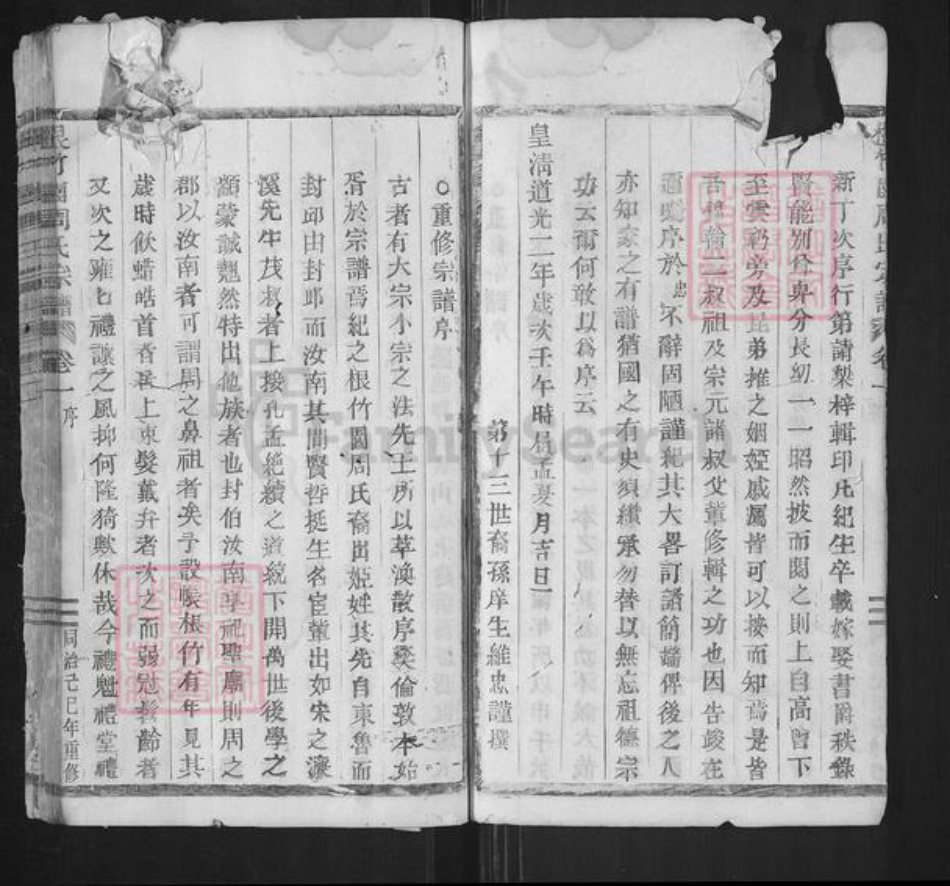 新丁次序行第請梨梓輯印凡紀生卒載嫁娶書爵秩錄
賢能別尊卑分長幼一一昭然披而閱之則上自高曾下
至雲礽旁及昆弟推之姻婭戚屬皆可以按而知焉是皆
叔祖及宗元諸叔父輩修輯之功也因告竣在
序於忠不辭固陋謹紀其大畧訂諸簡端俾後之人
亦知家之有譜猶國之有史須纘承勿替以無忘祖德宗
功云爾何敢以爲序云
皇清道光二年歲次壬午時居孟夏月吉日
第十三世裔孫庠生維忠謹撰
○重修宗譜序
古者有大宗小宗之法先王所以萃渙散序彝倫敦本始
胥於宗譜焉紀之根竹園周氏裔出姬姓其先自東魯而
封邱由封邱而汝南其間賢哲挺生名宦輩出如宋之濂
溪先生茂叔者上接孔孟絶續之道統下開萬世後學之
顓蒙誠翹然特出他族者也封伯汝南導祀聖廟則周之
郡以汝南者可謂周之鼻祖者矣予設帳根竹有年見其
歲時飲蜡皓首者居上束髮戴弁者次之而弱冠髫齡者
又次之雍七禮讓之風抑何隆猗歟休哉今禮魁禮堂禮
根竹園周氏宗譜 卷一 序 同治己巳年重修
周氏宗譜 卷一
FamilySearch